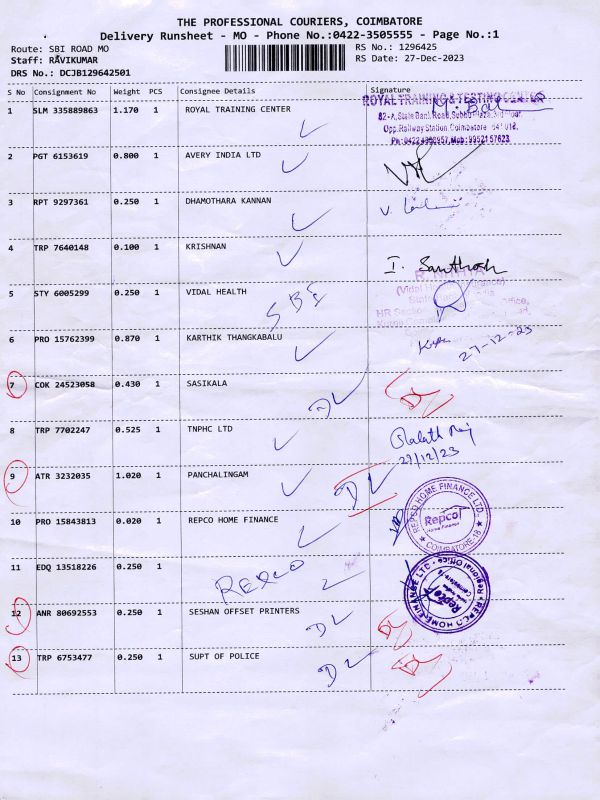 THE PROFESSIONAL COURIERS, COIMBATORE
Delivery Runsheet - MO - Phone No.:0422-3505555 - Page No.:1
Route: SBI ROAD MO RS No.: 1296425
Staff: RAVIKUMAR RS Date: 27-Dec-2023
DRS No.: DCJB129642501
S No Consignment No Weight PCS Consignee Details Signature
1 SLM 335889863 1.170 1 ROYAL TRAINING CENTER
ROYAL TRAINING & TESTING CENTER
82-A, State Bank Road,
Opp. Railway Station, Coimbatore - 641 018,
2 PGT 6153619 0.800 1 AVERY INDIA LTD
3 RPT 9297361 0.250 1 DHAMOTHARA KANNAN
4 TRP 7640148 0.100 1 KRISHNAN
I. Santhosh
5 STY 6005299 0.250 1 VIDAL HEALTH SBI
6 PRO 15762399 0.870 1 KARTHIK THANGKABALU
27-12-23
7 COK 24523058 0.430 1 SASIKALA DL DL
8 TRP 7702247 0.525 1 TNPHC LTD
27/12/23
9 ATR 3232035 1.020 1 PANCHALINGAM DL
10 PRO 15843813 0.020 1 REPCO HOME FINANCE
REPCO HOME FINANCE LTD. COIMBATORE-18
Repco
Home Finance
11 EDQ 13518226 0.250 1 REPCO
REPCO HOME FINANCE LTD
Regional Office
Coimbatore
12 ANR 80692553 0.250 1 SESHAN OFFSET PRINTERS DL DL
13 TRP 6753477 0.250 1 SUPT OF POLICE DL DL